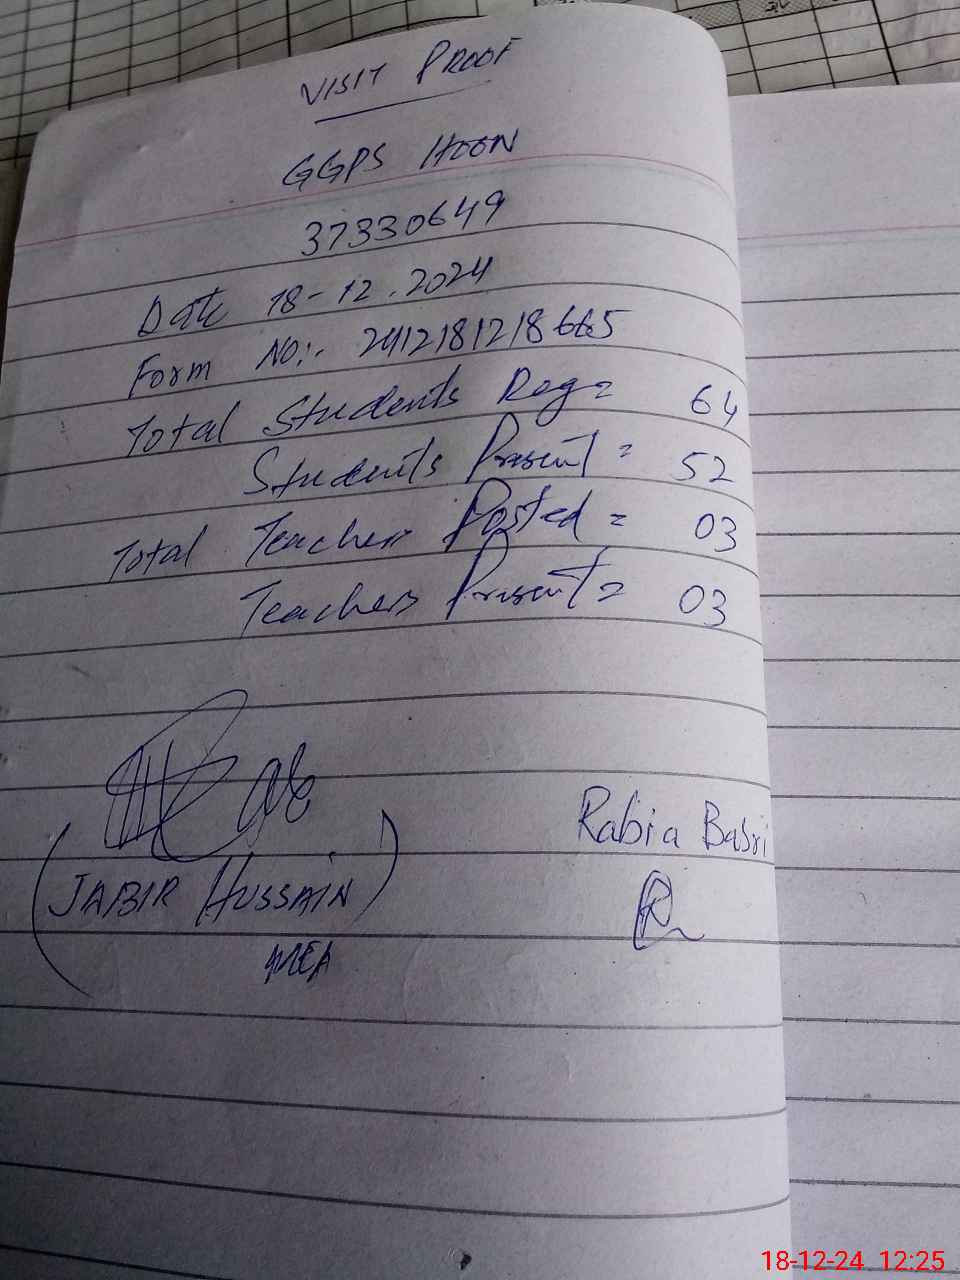 VISIT PROOF
GGPS HOON
37330649
Date 18-12.2024
Form No:. 2412181218665
Total Students Reg= 64
Students Present = 52
Total Teachers Posted = 03
Teachers Present = 03
Rabia Basri
(JABIR HUSSAIN)
MEA
18-12-24 12:25